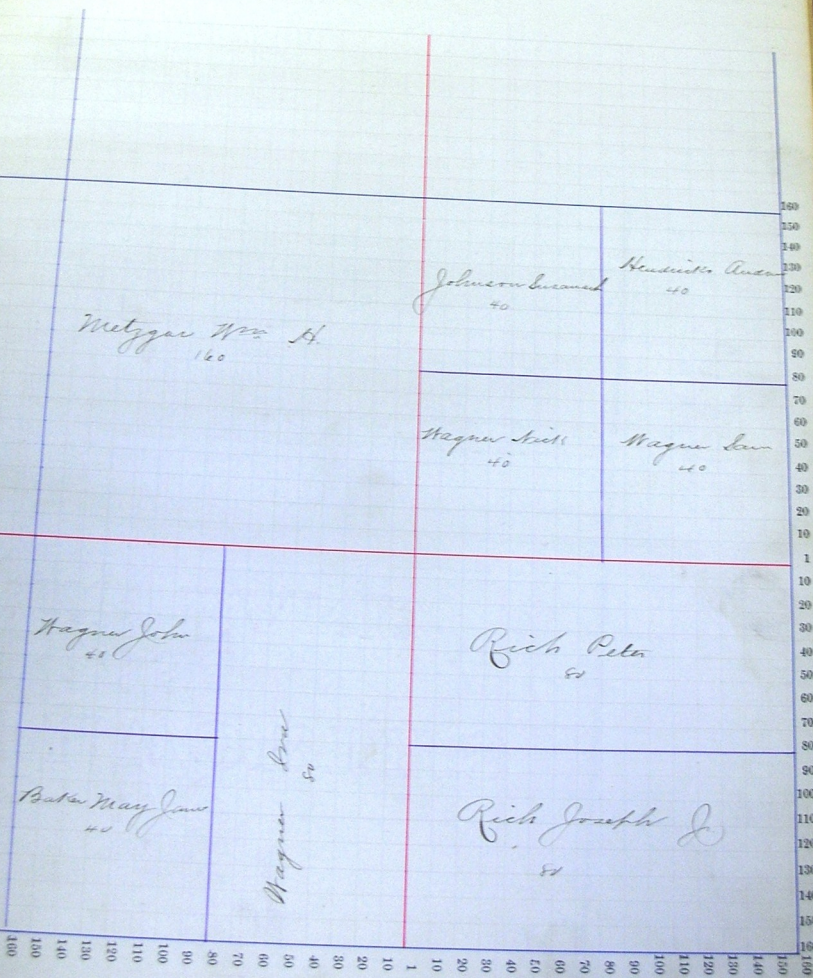 Johnson Susanah
40
Hendricks
40
Metzgar Wm H.
160
Wagner Nick
40
Wagner Sam
40
Wagner John
40
Rich Peter
80
Wagner Ira
80
Baker May Jane
40
Rich Joseph J
80
160
150
140
130
120
110
100
90
80
70
60
50
40
30
20
10
1
10
20
30
40
50
60
70
80
90
100
110
120
130
140
150
160
160 150 140 130 120 110 100 90 80 70 60 50 40 30 20 10 1 10 20 30 40 50 60 70 80 90 100 110 120 130 140 150 160